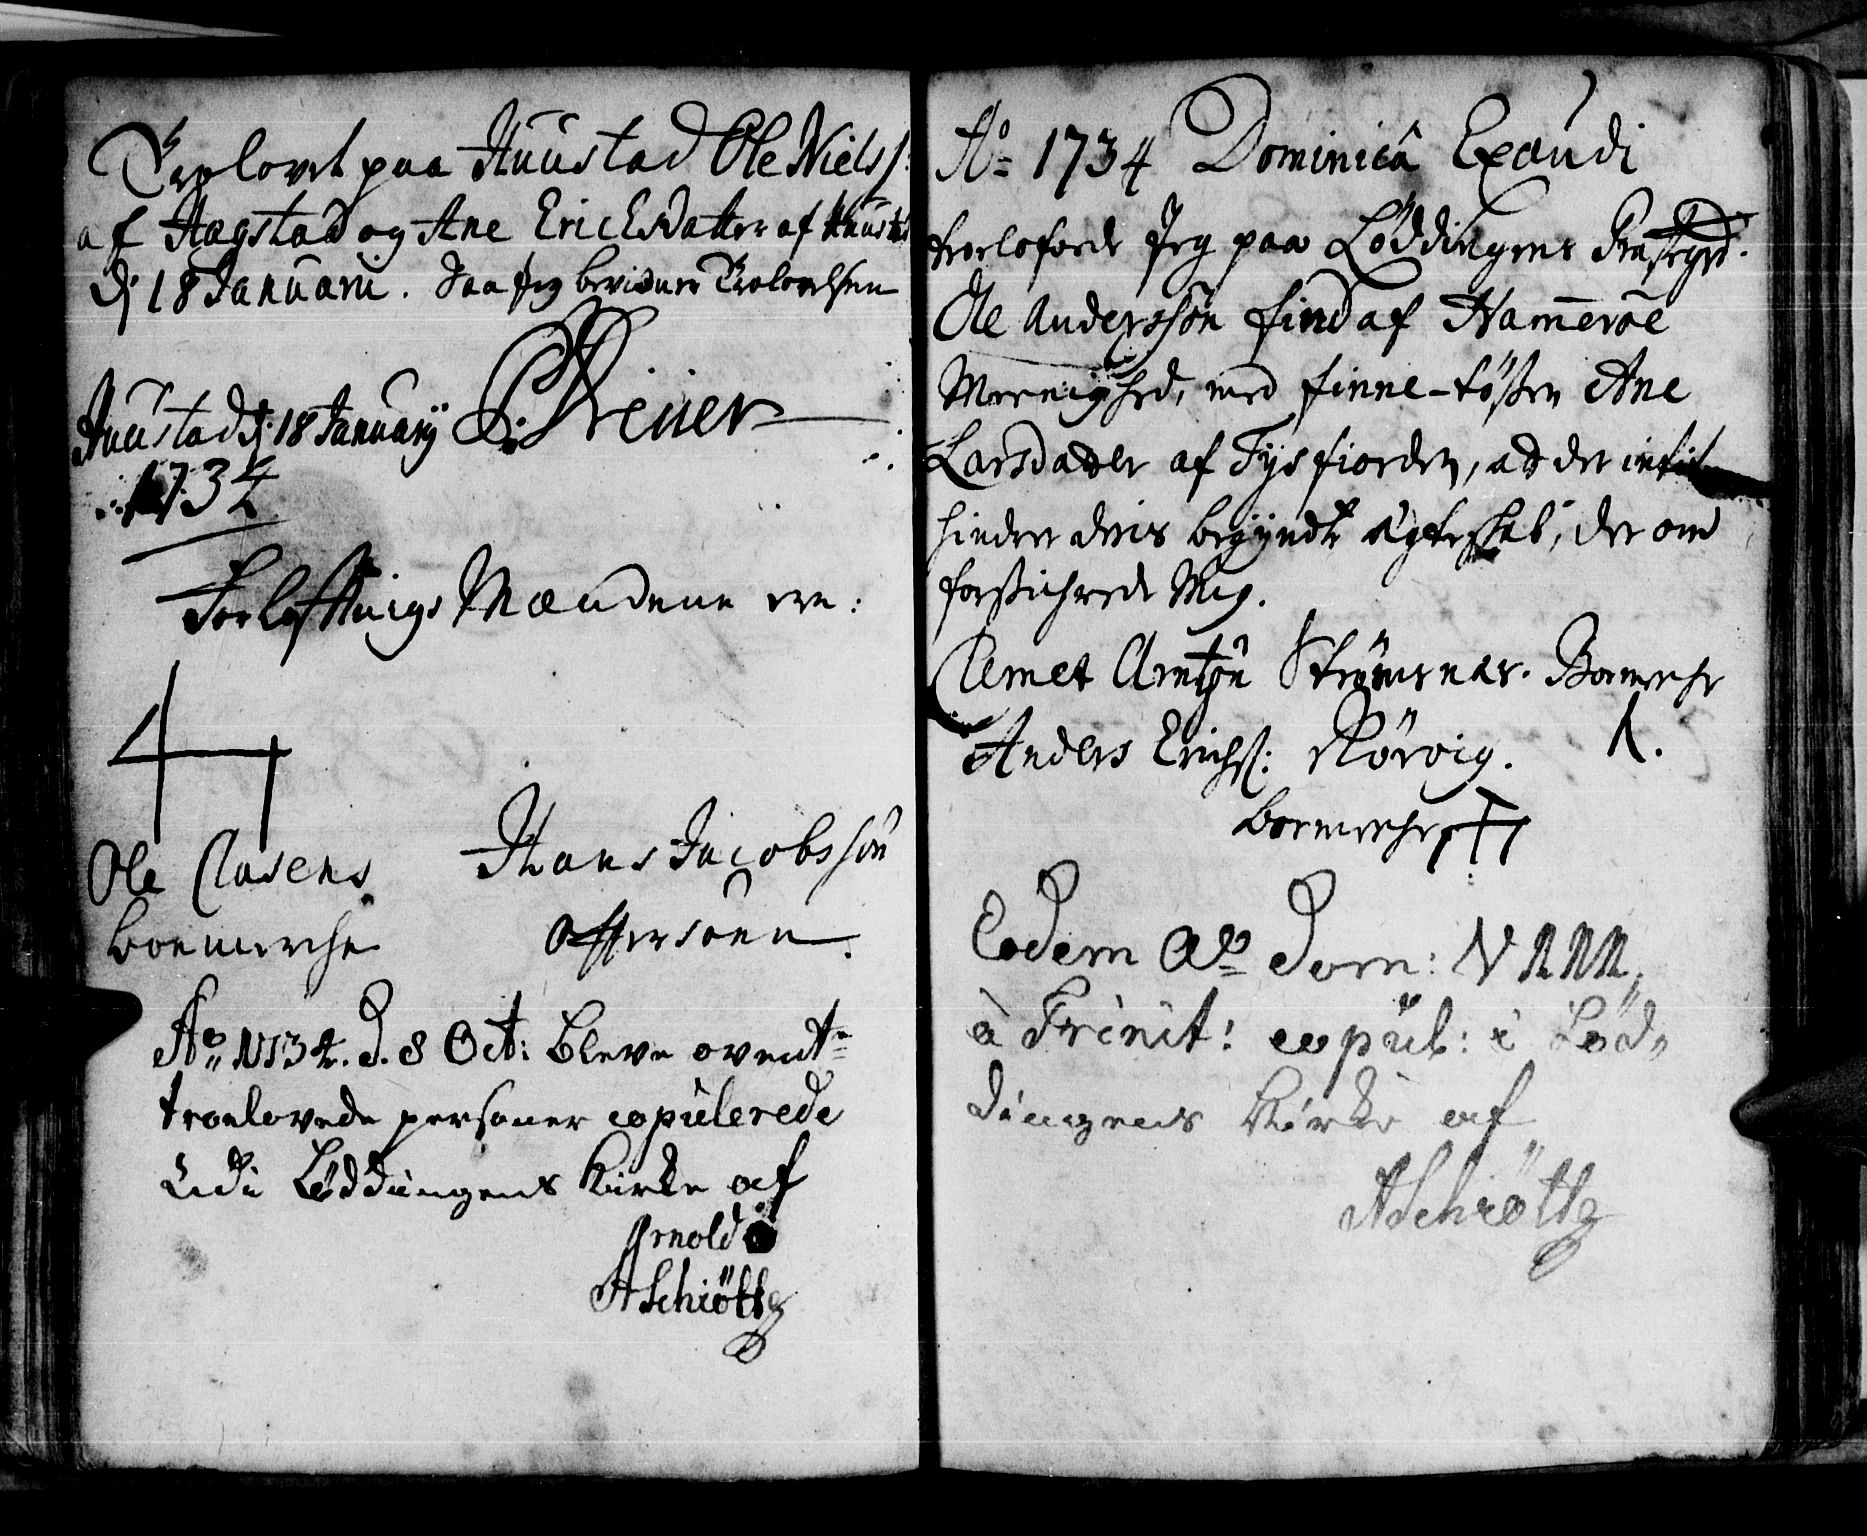 Trolovet paa Huustad Ole Nielss:
af Hagstad og Ane Ericksdatter af Huustad
dj 18 Januarii. Saa Jeg beviduer Trolovelsen
Huustad dj 18 Januarij
1734
Forloftnigs Mændene ere:
Ole Clasens Hans Jacobssön
boemerche Offersöen
Ao 1734. d. 8 Oct: bleve ovent-
troelovede personer copulerede
udi Löddingens Kirke af
Arnold
ASchiöttz
Ao 1734 Dominicâ Exaudi
troelofvede Jeg paa Löddingens Præstegrd.
Ole Andersson find af Hammeröe
Meenighed, med finne-töszen Ane
Larsdatter af Tysfiorden, at der intit
hindrer deris begyndte ægteskab, der om
forsichrede Mig.
Clemet Arntsön Strömsnæs. Boemerche
Anders Erichss: Rörvig.
boemerche
Eodem Ao Dom:
à Trinit: copul: i Löd,,
dingens Kirke af
ASchiöttz